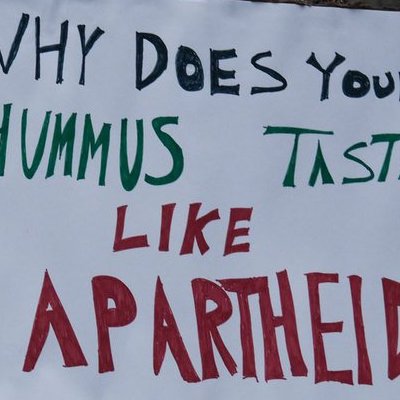 WHY DOES YOUR
HUMMUS TASTE
LIKE
APARTHEID